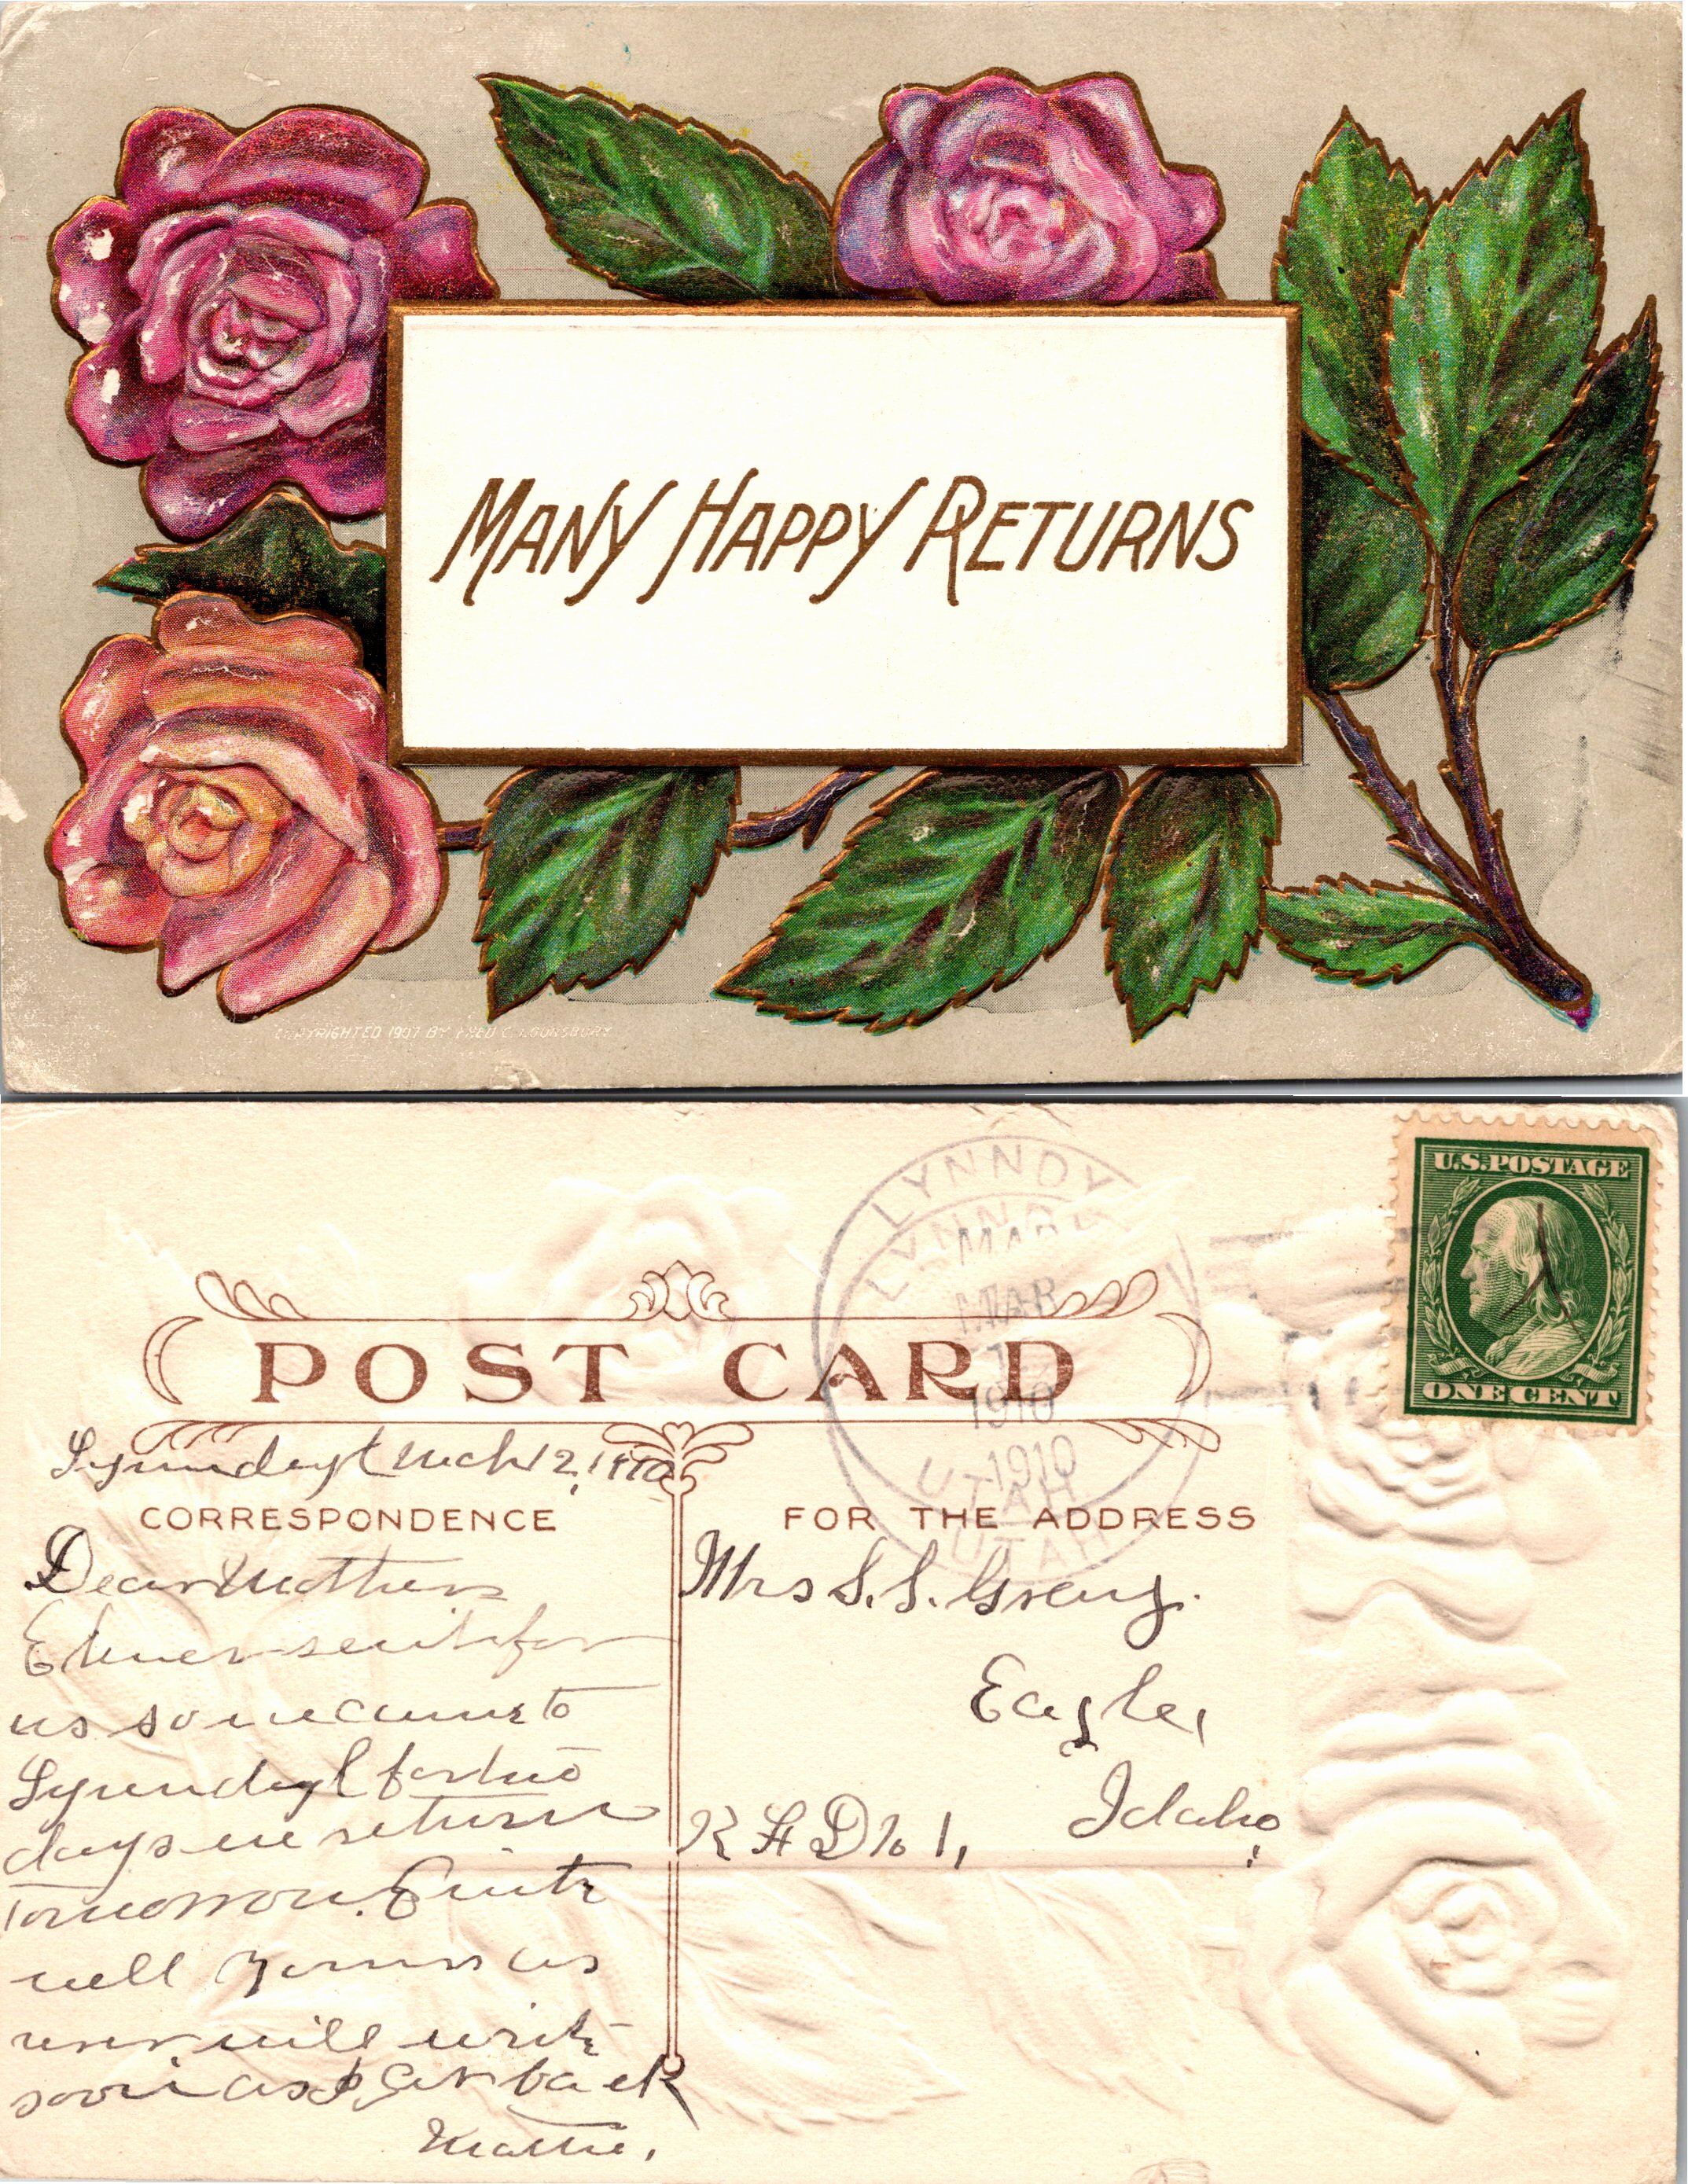 MANY HAPPY RETURNS
COPYRIGHTED 1907 BY FRED C. LOUNSBURY
LYNNDYL
LYNNDYL
MAR
MAR
1910
1910
UTAH
UTAH
U.S. POSTAGE
ONE CENT
POST CARD
Lynndyl Mch 12, 1910
CORRESPONDENCE
FOR THE ADDRESS
Dear Mother
Elmer sent for
us so we came to
Lynndyl for two
days we return
tomorrow. Quite
well as
ever will write
soon as I get back
Mattie.
Mrs S. S. Gray.
Eagle,
Idaho
R F D No 1,